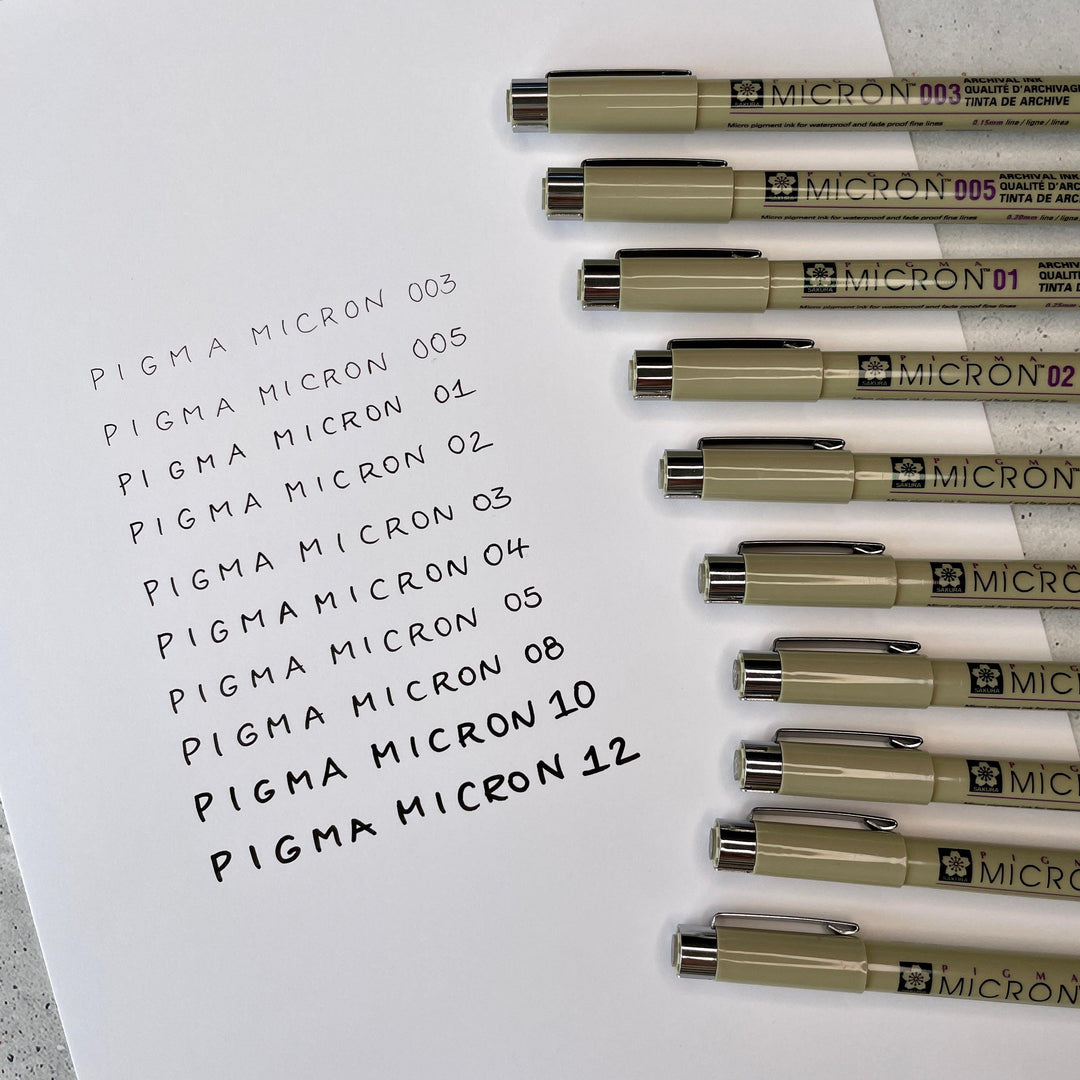 PIGMA MICRON 003
PIGMA MICRON 005
PIGMA MICRON 01
PIGMA MICRON 02
PIGMA MICRON 03
PIGMA MICRON 04
PIGMA MICRON 05
PIGMA MICRON 08
PIGMA MICRON 10
PIGMA MICRON 12
PIGMA
SAKURA MICRON™ 003
ARCHIVAL INK
QUALITÉ D'ARCHIVAGE
TINTA DE ARCHIVE
Micro pigment ink for waterproof and fade proof fine lines 0.15mm line / ligne / línea
MICRON™ 005
ARCHIVAL INK
QUALITÉ D'ARC
TINTA DE ARC
Micro pigment ink for waterproof and fade proof fine lines 0.20mm line / ligne
PIGMA
SAKURA MICRON™ 01
ARCHIV
QUALIT
TINTA D
Micro pigment ink for waterproof and fade proof fine lines 0.25mm
PIGMA
SAKURA MICRON™ 02
PIGMA
SAKURA MICRON
PIGM
SAKURA MICRO
PIG
SAKURA MIC
PIG
SAKURA MIC
PIGM
SAKURA MICRO
PIGMA
SAKURA MICRON